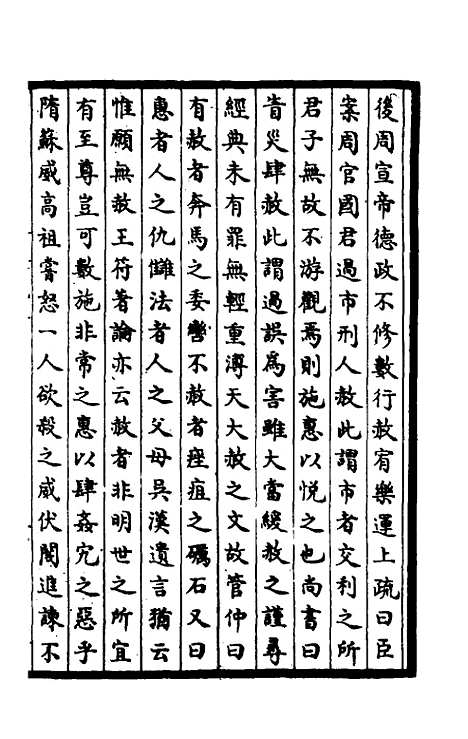 後周宣帝德政不修數行赦宥樂運上疏曰臣
案周官國君過市刑人赦此謂市者交利之所
君子無故不游觀焉則施惠以悅之也尚書曰
眚災肆赦此謂過誤爲害雖大當緩赦之謹尋
經典未有罪無輕重溥天大赦之文故管仲曰
有赦者奔馬之委轡不赦者痤疽之礪石又曰
惠者人之仇讎法者人之父母吳漢遺言猶云
惟願無赦王符著論亦云赦者非明世之所宜
有至尊豈可數施非常之惠以肆姦宄之惡乎
隋蘇威高祖嘗怒一人欲殺之威伏閤進諫不